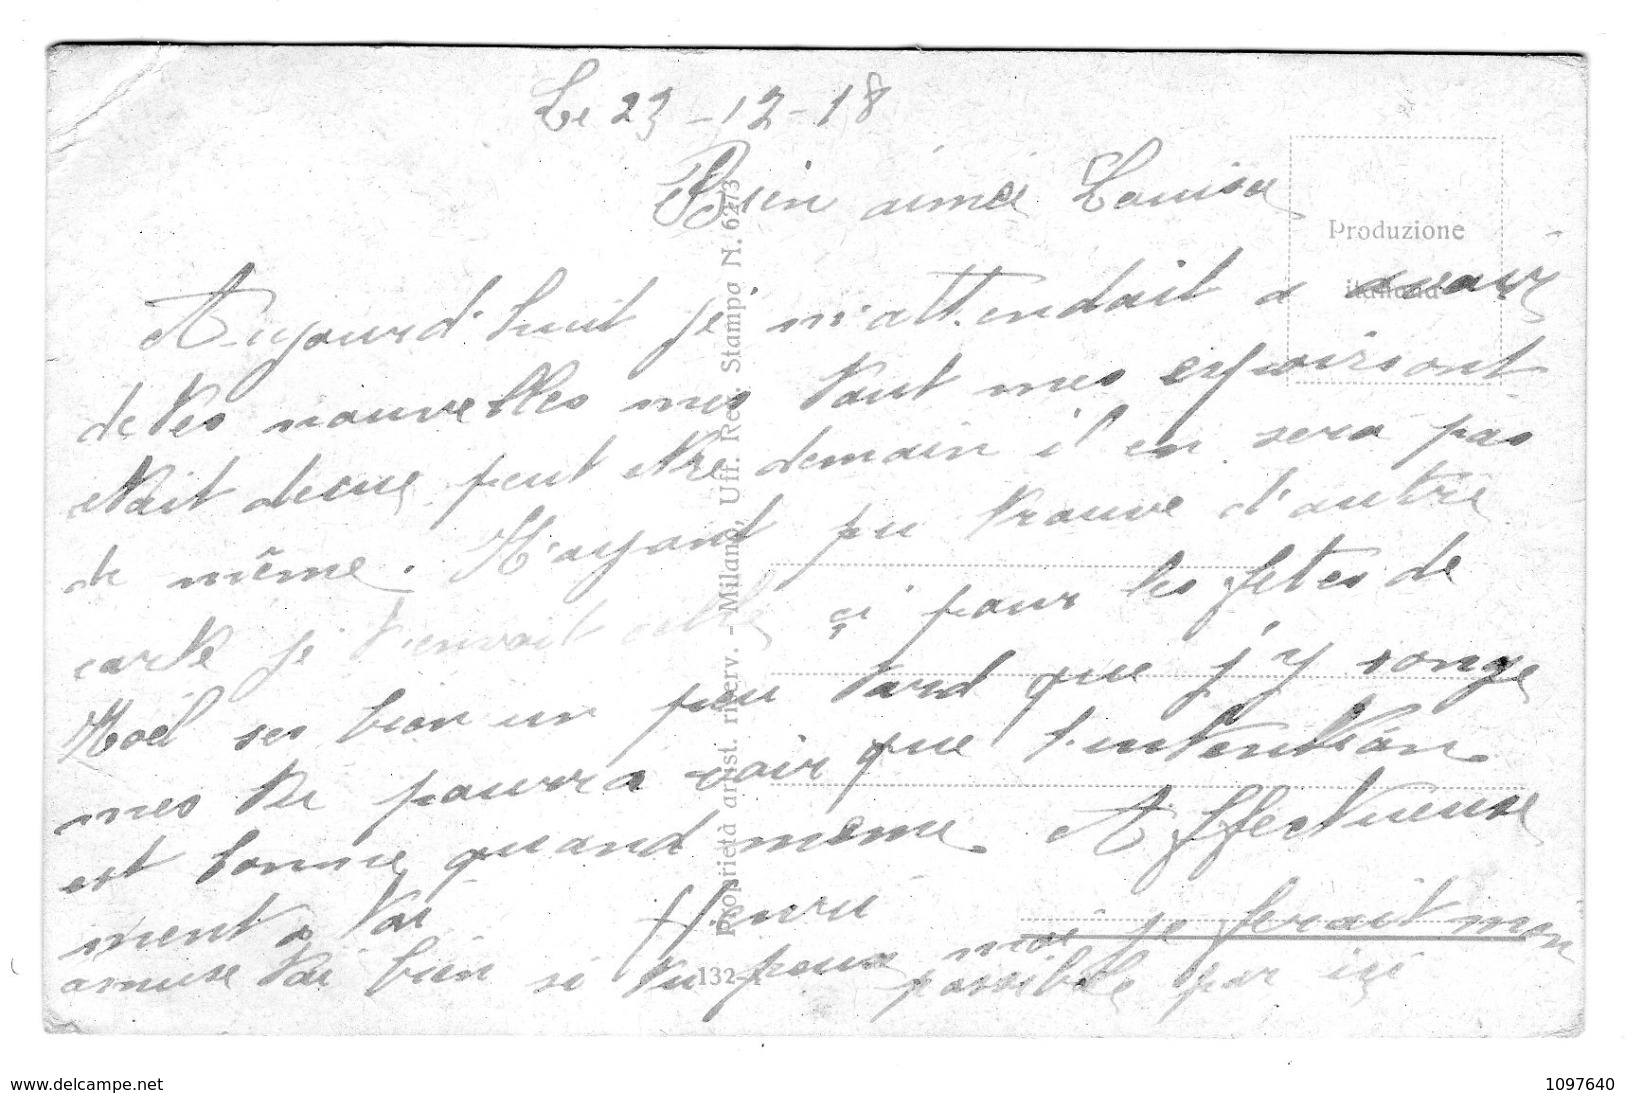 Le 23-12-18
Bien aimée Louisa
Produzione
italiana
Aujourd'huit je m'attendait a avoir
de tes nouvelles mes tout mes espoir sont
etait decue peut etre demain il en sera pas
de même. N'ayant pu trouve d'autre
carte je t'envoit celle çi pour les fetes de
Noël ses bien un peu tard que j'y songe
mes tu pourra voir que l'intention
est bonne quand meme Affectueuse
ment a toi Henri
amuse toi bien si tu peux moi je ferait mon
possible par içi
Proprietà artist. riserv. - Milano, Uff. Rev. Stampa N. 6273
132-
www.delcampe.net
1097640